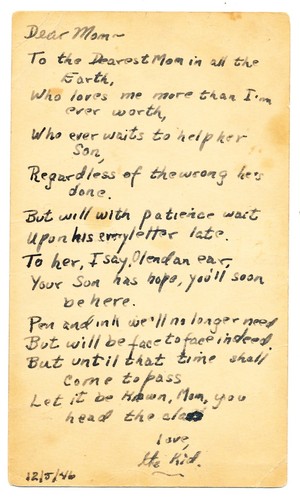 Dear Mom~
To the Dearest Mom in all the
Earth,
Who loves me more than I'm
ever worth,
Who ever waits to help her
Son,
Regardless of the wrong he's
done.
But will with patience wait
Upon his every letter late.
To her, I say, O lend an ear,
Your Son has hope, you'll soon
be here.
Pen and ink we'll no longer need
But will be face to face indeed.
But until that time shall
Come to pass
Let it be known, Mom, you
head the class
love,
Kid.
12/5/46